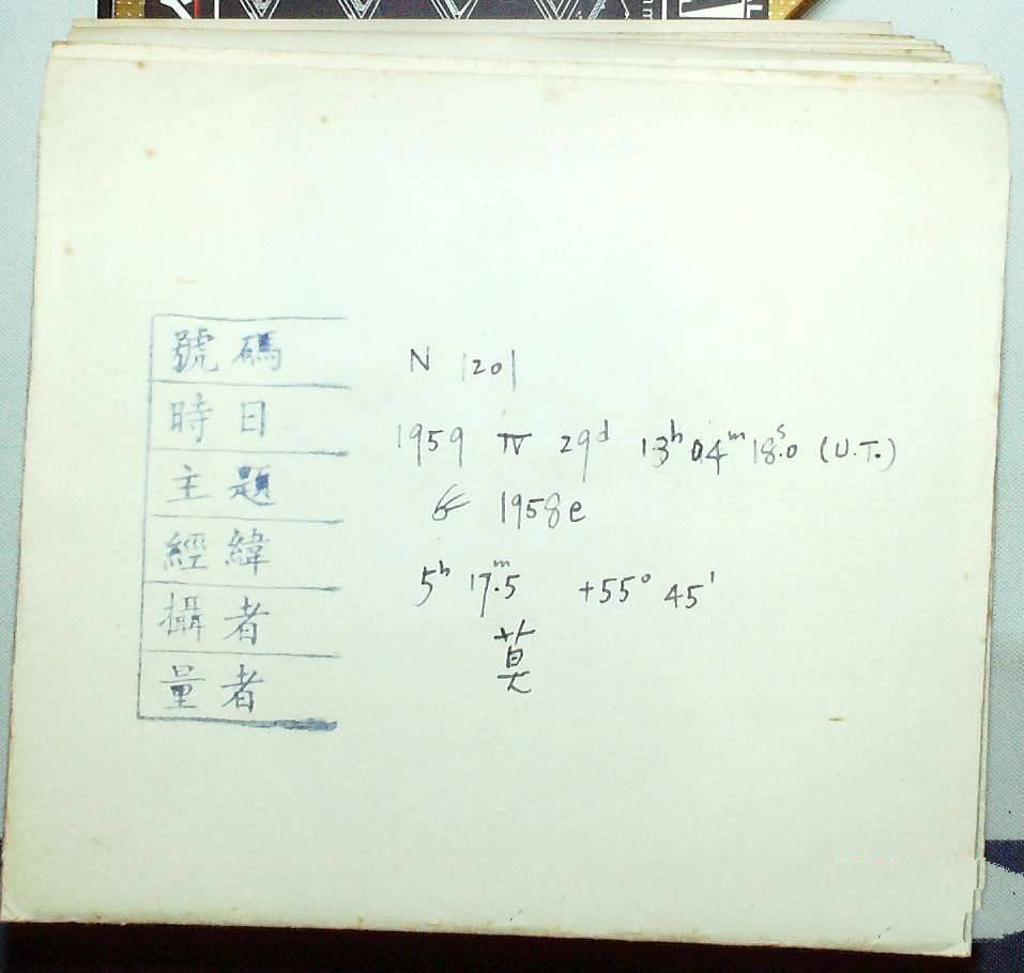 號碼 N 1201
時日 1959 IV 29ᵈ 13ʰ 04ᵐ 18ˢ.0 (U.T.)
主題 ☄ 1958e
經緯 5ʰ 17ᵐ.5 +55° 45'
攝者 莫
量者